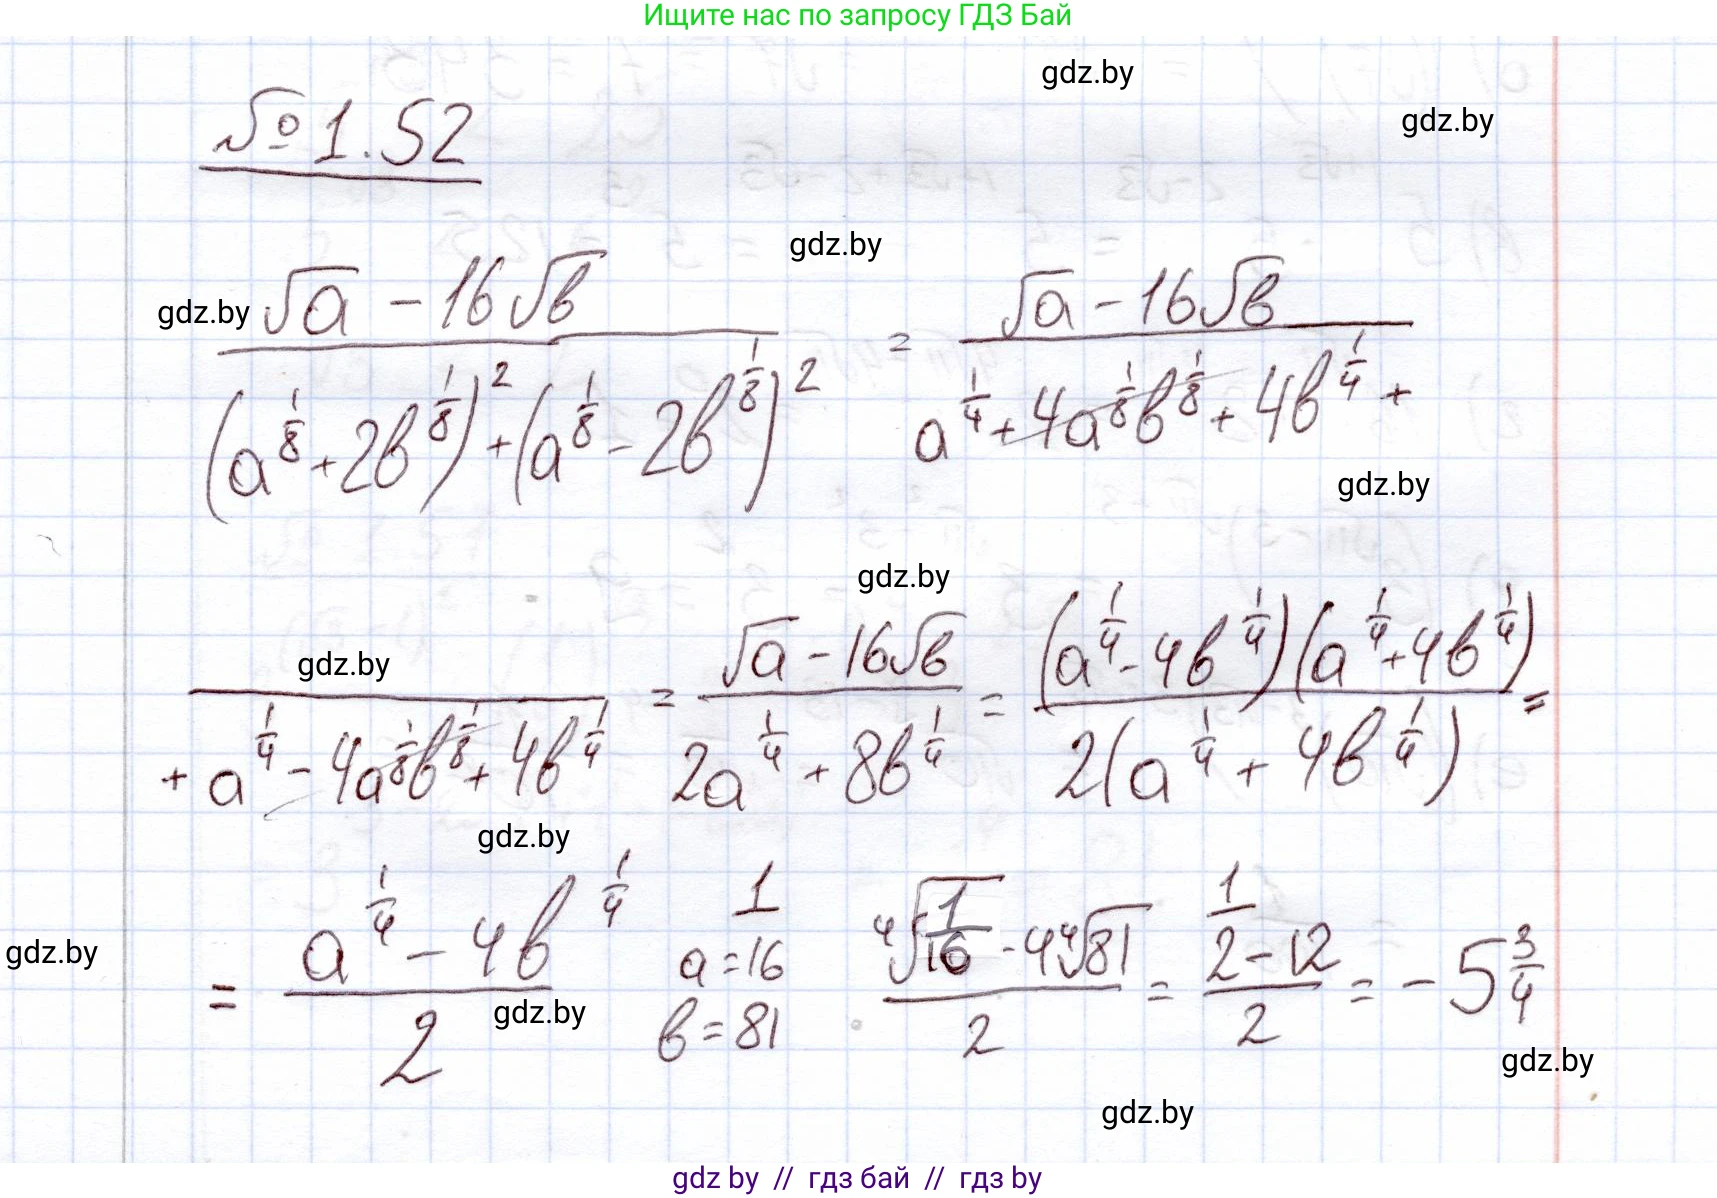 Ищите нас по запросу ГДЗ Бай
gdz.by
gdz.by
№ 1.52
gdz.by
gdz.by
(√a − 16√b) / ((a^(1/8) + 2b^(1/8))² + (a^(1/8) − 2b^(1/8))²) = (√a − 16√b) / (a^(1/4) + 4a^(1/8)b^(1/8) + 4b^(1/4) +
gdz.by
gdz.by
gdz.by
+ a^(1/4) − 4a^(1/8)b^(1/8) + 4b^(1/4)) = (√a − 16√b) / (2a^(1/4) + 8b^(1/4)) = ((a^(1/4) − 4b^(1/4))(a^(1/4) + 4b^(1/4))) / (2(a^(1/4) + 4b^(1/4))) =
gdz.by
= (a^(1/4) − 4b^(1/4)) / 2   a = 1/16   b = 81   (∜(1/16) − 4∜81) / 2 = (1/2 − 12) / 2 = −5 3/4
gdz.by
gdz.by
gdz.by
gdz.by
gdz by // гдз бай // гдз by